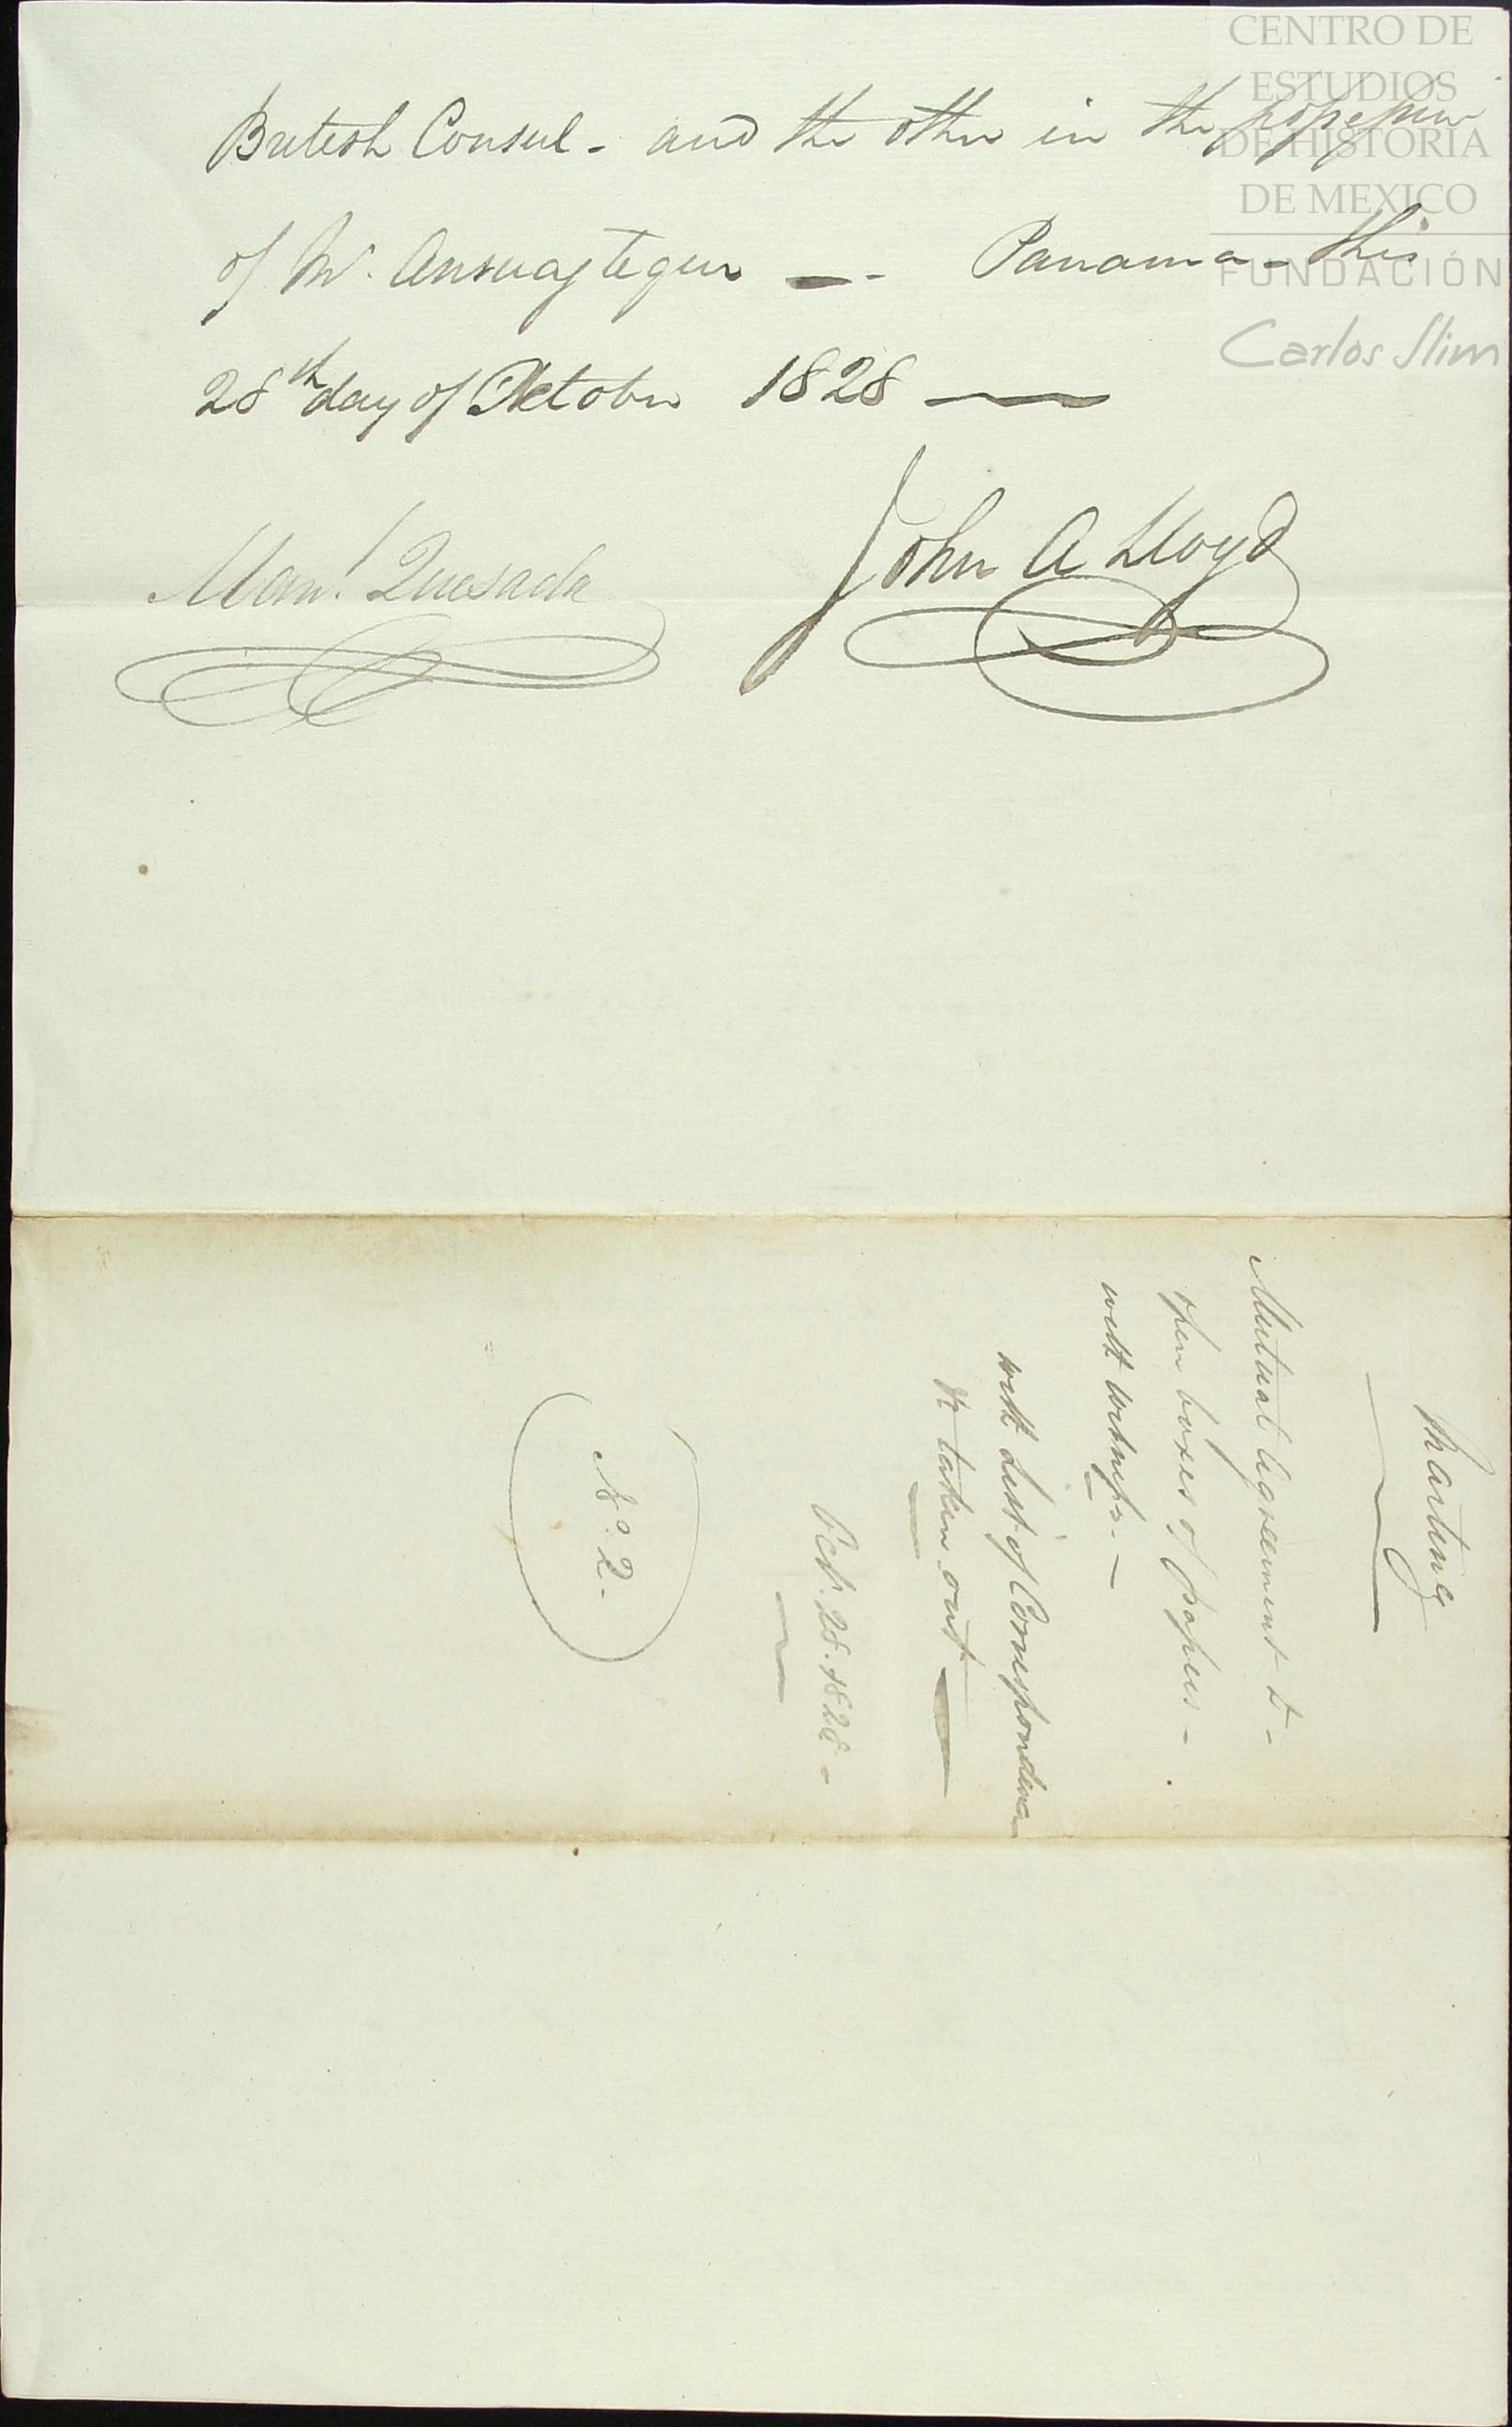 British Consul - and the other in the possession
of Mr. Ansuategui — - Panama - this
28th day of October 1828 —
Manl. Quesada
John A Lloyd
Martinez
Mutual Agreement to -
open boxes of papers -
with witness. -
with List of Correspondence
taken out —
Oct. 28. 1828 -
No. 2 -
CENTRO DE
ESTUDIOS
DE HISTORIA
DE MEXICO
FUNDACIÓN
Carlos Slim